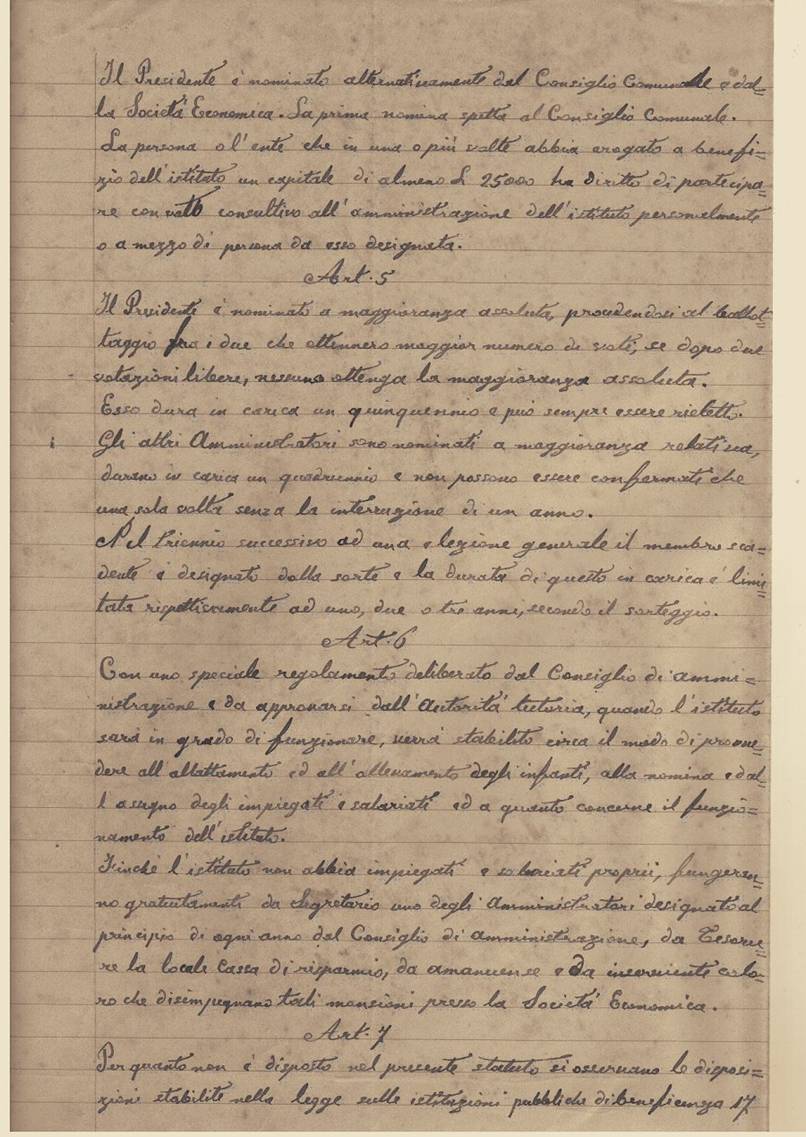 Il Presidente è nominato alternativamente dal Consiglio Comunale e dal=
la Società Economica. La prima nomina spetta al Consiglio Comunale.
La persona o l'ente che in una o più volte abbia erogato a benefi=
zio dell'istituto un capitale di almeno L 25000 ha diritto di partecipa=
re con voto consultivo all'amministrazione dell'istituto personalmente
o a mezzo di persona da esso designata.
Art. 5
Il Presidente è nominato a maggioranza assoluta, procedendosi al ballot=
taggio fra i due che ottennero maggior numero di voti, se dopo due
votazioni libere, nessuno ottenga la maggioranza assoluta.
Esso dura in carica un quinquennio e può sempre essere rieletto.
Gli altri Amministratori sono nominati a maggioranza relativa,
durano in carica un quadriennio e non possono essere confermati che
una sola volta senza la interruzione di un anno.
Nel triennio successivo ad una elezione generale il membro sca=
dente è designato dalla sorte e la durata di questo in carica è limi=
tata rispettivamente ad uno, due o tre anni, secondo il sorteggio.
Art. 6
Con uno speciale regolamento deliberato dal Consiglio di ammi=
nistrazione e da approvarsi dall'Autorità tutoria, quando l'istituto
sarà in grado di funzionare, verrà stabilito circa il modo di provve=
dere all'allattamento ed all'allevamento degli infanti, alla nomina e dal=
l'assegno degli impiegati e salariati ed a quanto concerne il funzio=
namento dell'istituto.
Finchè l'istituto non abbia impiegati e salariati proprii, fungeran=
no gratuitamenti da Segretario uno degli Amministratori designato al
principio di ogni anno dal Consiglio di amministrazione, da Tesorie=
re la locale Cassa di risparmio, da amanuense e da inserviente colo=
ro che disimpegnano tali mansioni presso la Società Economica.
Art. 7
Per quanto non è disposto nel presente statuto si osservano le disposi=
zioni stabilite nella legge sulle istituzioni pubbliche di beneficenza 17